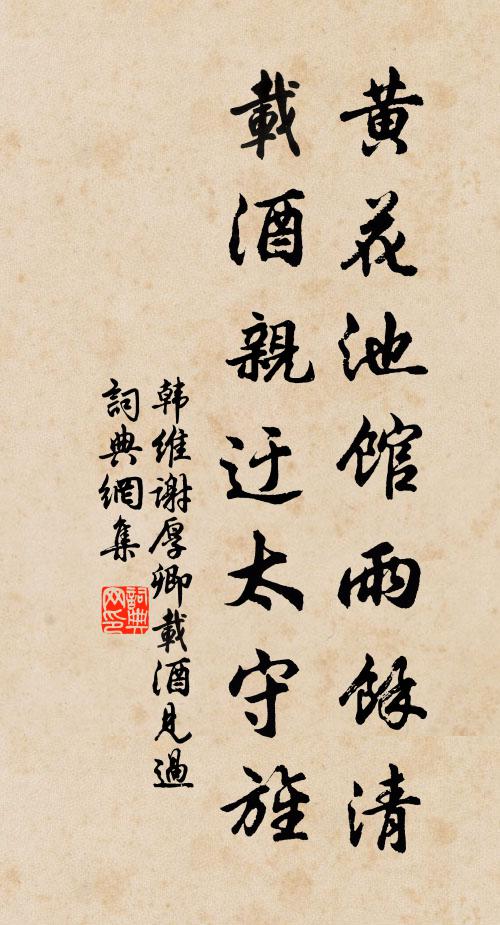 黄花池馆雨餘清
載酒親迂太守旌
韩维谢厚卿載酒見過
詞典網集
詞典网印